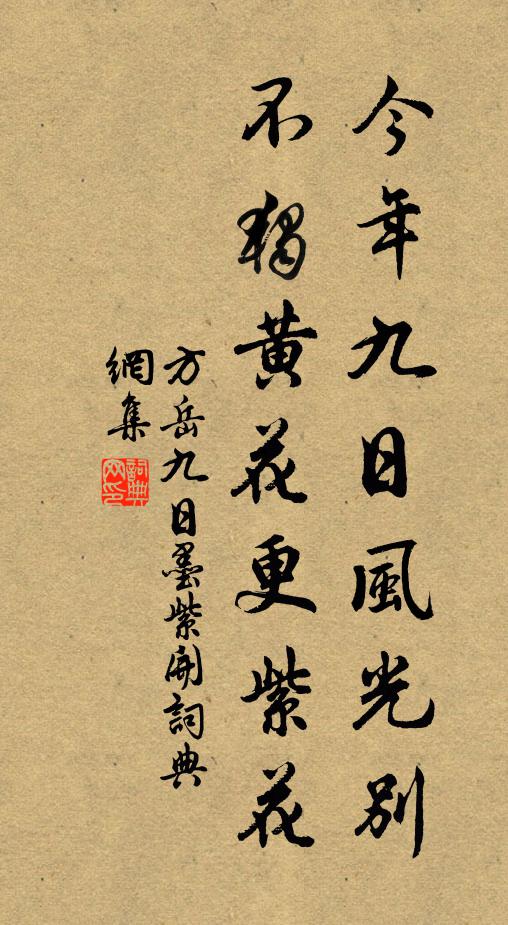 今年九日風光別
不獨黄花更紫花
方岳九日墨紫開詞典
網集
詞典网印